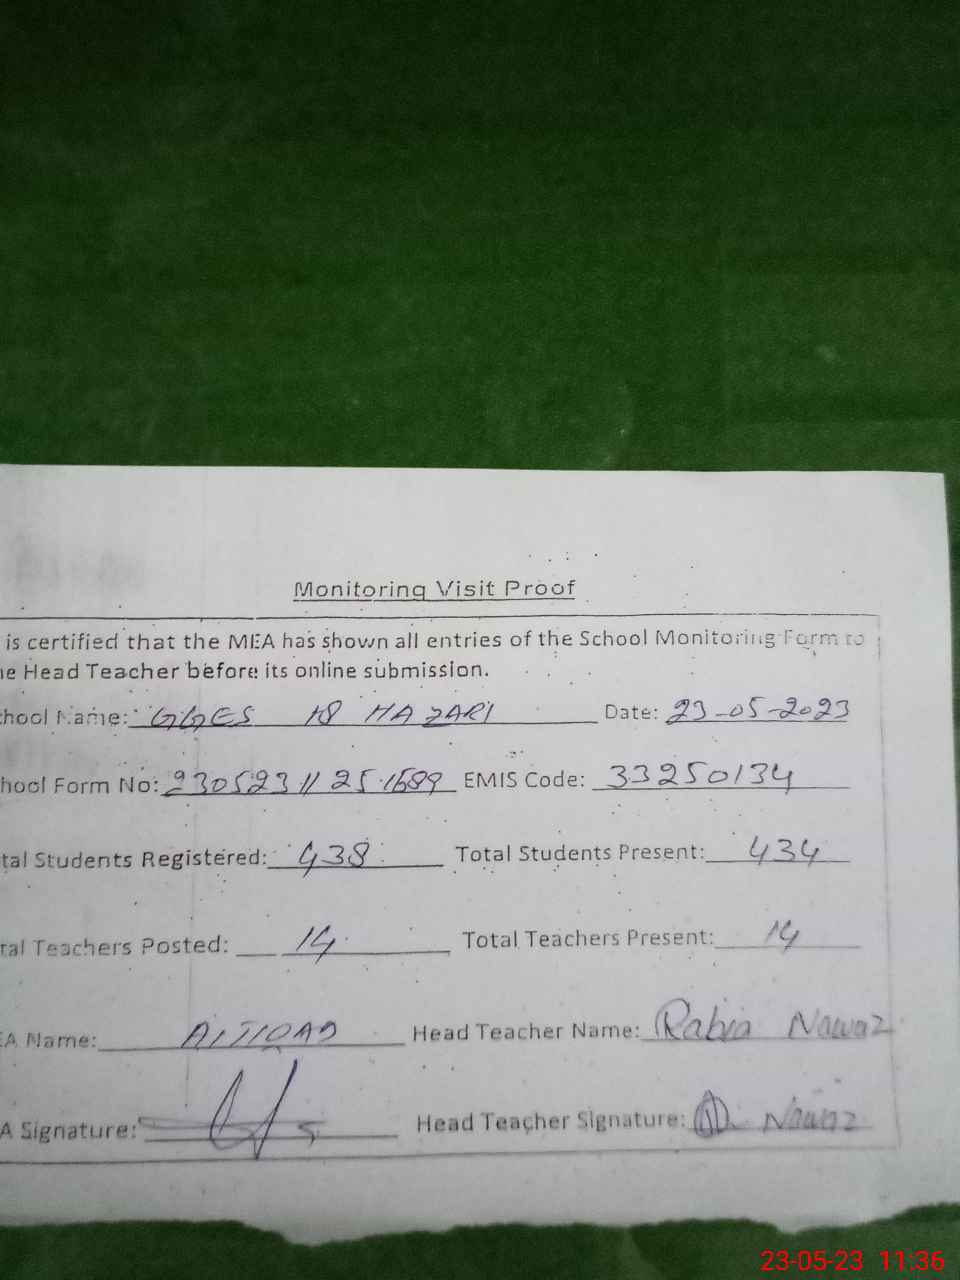 Monitoring Visit Proof
is certified that the MEA has shown all entries of the School Monitoring Form to
he Head Teacher before its online submission.
chool Name: GGES 18 HAZARI Date: 23-05-2023
hool Form No: 23052311251689 EMIS Code: 33250134
tal Students Registered: 438 Total Students Present: 434
tal Teachers Posted: 14 Total Teachers Present: 14
EA Name: Head Teacher Name: Rabia Nawaz
A Signature: Head Teacher Signature: Nawaz
23-05-23 11:36